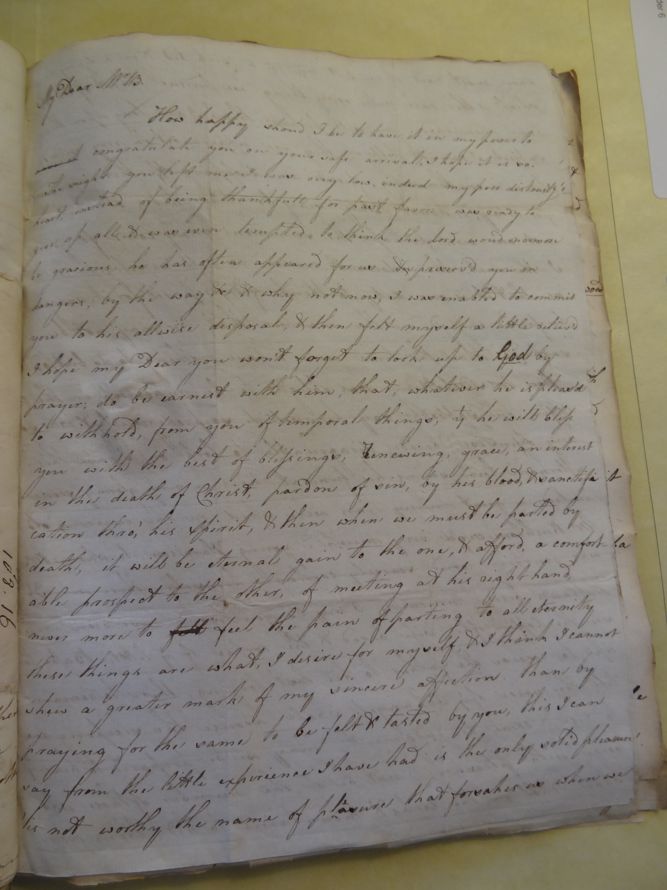 My Dear Mr B.
How happy shoud I be to have it in my power to
congratulate you on your safe arrival, I hope it is so.
night you left me I was very low indeed my poor
heart instead of being thankfull for past favors was ready to
give up all & was even tempted to think the Lord woud no more
be gracious, he has often appeared for us & preserv'd you in
dangers, by the way & & why not now, I was enabled to commit
you to his allwise disposal, & then felt myself a little reliev'd
I hope my Dear you won't forget to look up to God by
prayer, do be earnest with him, that, whatever he is pleased
to withhold, from you of temporal things, he will bless
you with the best of blessings, Renewing, grace, an interest
in the death of Christ, pardon of sin, by his blood, & sanctifi
cation thro', his Spirit, & then when we must be parted by
death, it will be eternal gain to the one, & afford, a comfort
able prospect to the other, of meeting at his right hand,
never more to feel the pain of parting to all eternity
these things are what, I desire for myself & I think I cannot
shew a greater mark of my sincere affection than by
praying for the same to be felt & tasted by you, this I can
say from the little experience I have had is the only solid pleasure
tis not worthy the name of pleasure that forsakes us when we
183.16